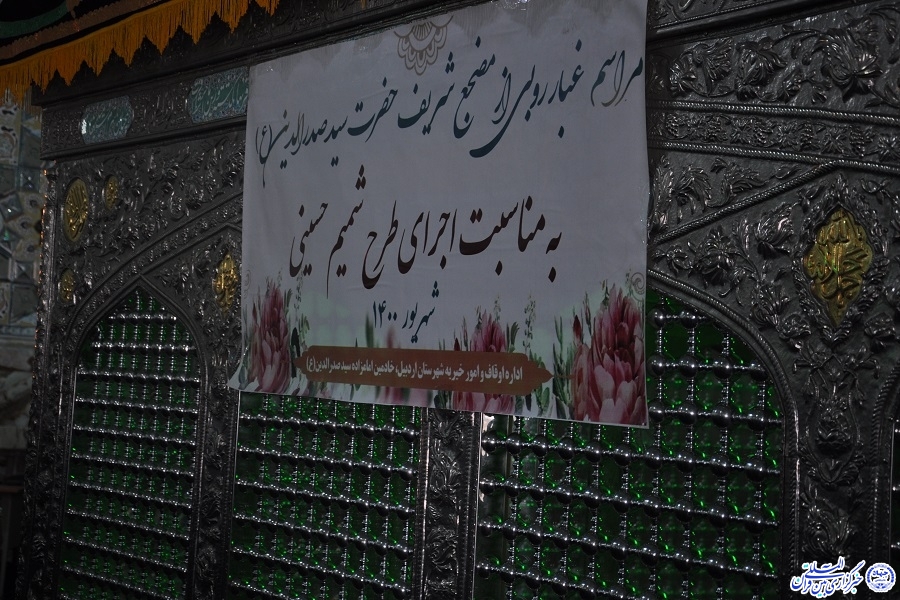 مراسم غبارروبی از مضجع شریف حضرت سید صدرالدین (ع)
به مناسبت اجرای طرح شمیم حسینی
شهریور ۱۴۰۰
اداره اوقاف و امور خیریه شهرستان اردبیل، خادمین امامزاده سید صدرالدین (ع)
خبرگزاری بین المللی قرآن